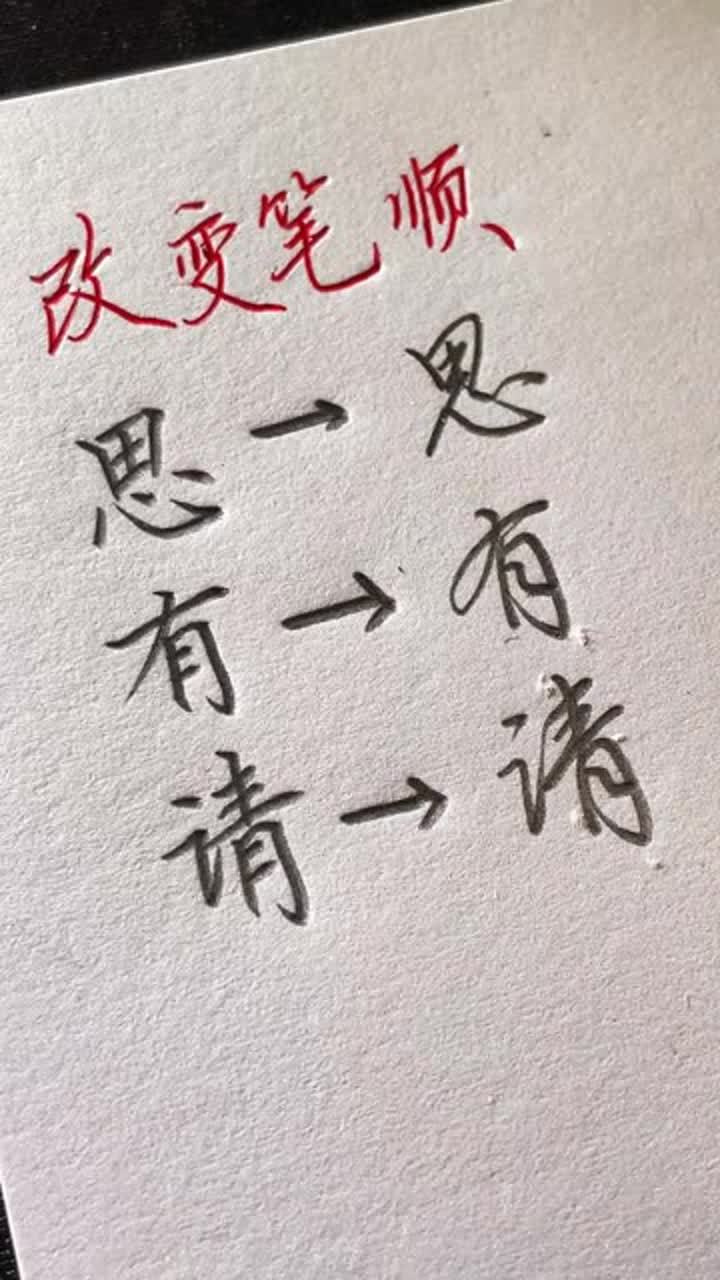 改变笔顺
思→思
有→有
请→请